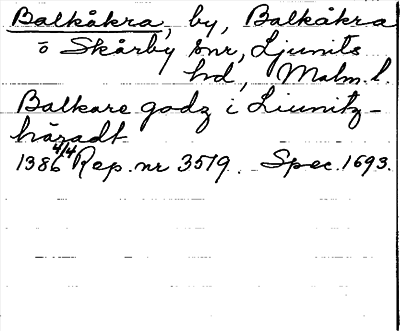 Balkåkra, by, Balkåkra
o Skårby snr, Ljunits
hd, Malm. l.
Balkare godz i Liunitz-
häradt
1386 4/4 Rep. nr 3519. Spec. 1693.